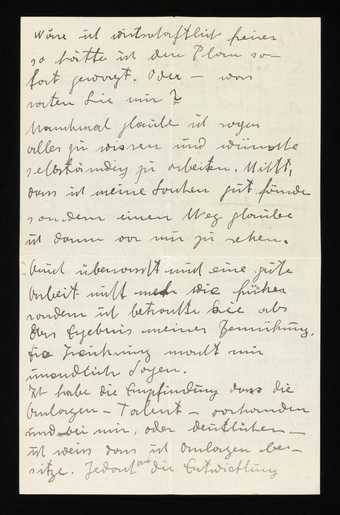 Wäre ich wirtschaftlich freier
so hätte ich den Plan so-
fort gewagt. Oder – was
raten Sie mir?
Manchmal glaube ich sogar
alles zu wissen und wünsche
selbständig zu arbeiten. Nicht,
dass ich meine Sachen gut fände
sondern einen Weg glaube
ich dann vor mir zu sehen.
Auch überrascht mich eine gute
Arbeit nicht mehr wie früher
sondern ich betrachte sie als
das Ergebnis meiner Bemühung.
Die Zeichnung macht mir
unendlich Sorgen.
Ich habe die Empfindung dass die
Anlagen – Talent – vorhanden
sind bei mir, oder deutlicher –
ich weiss dass ich Anlagen be-
sitze. Jedoch die Entwicklung